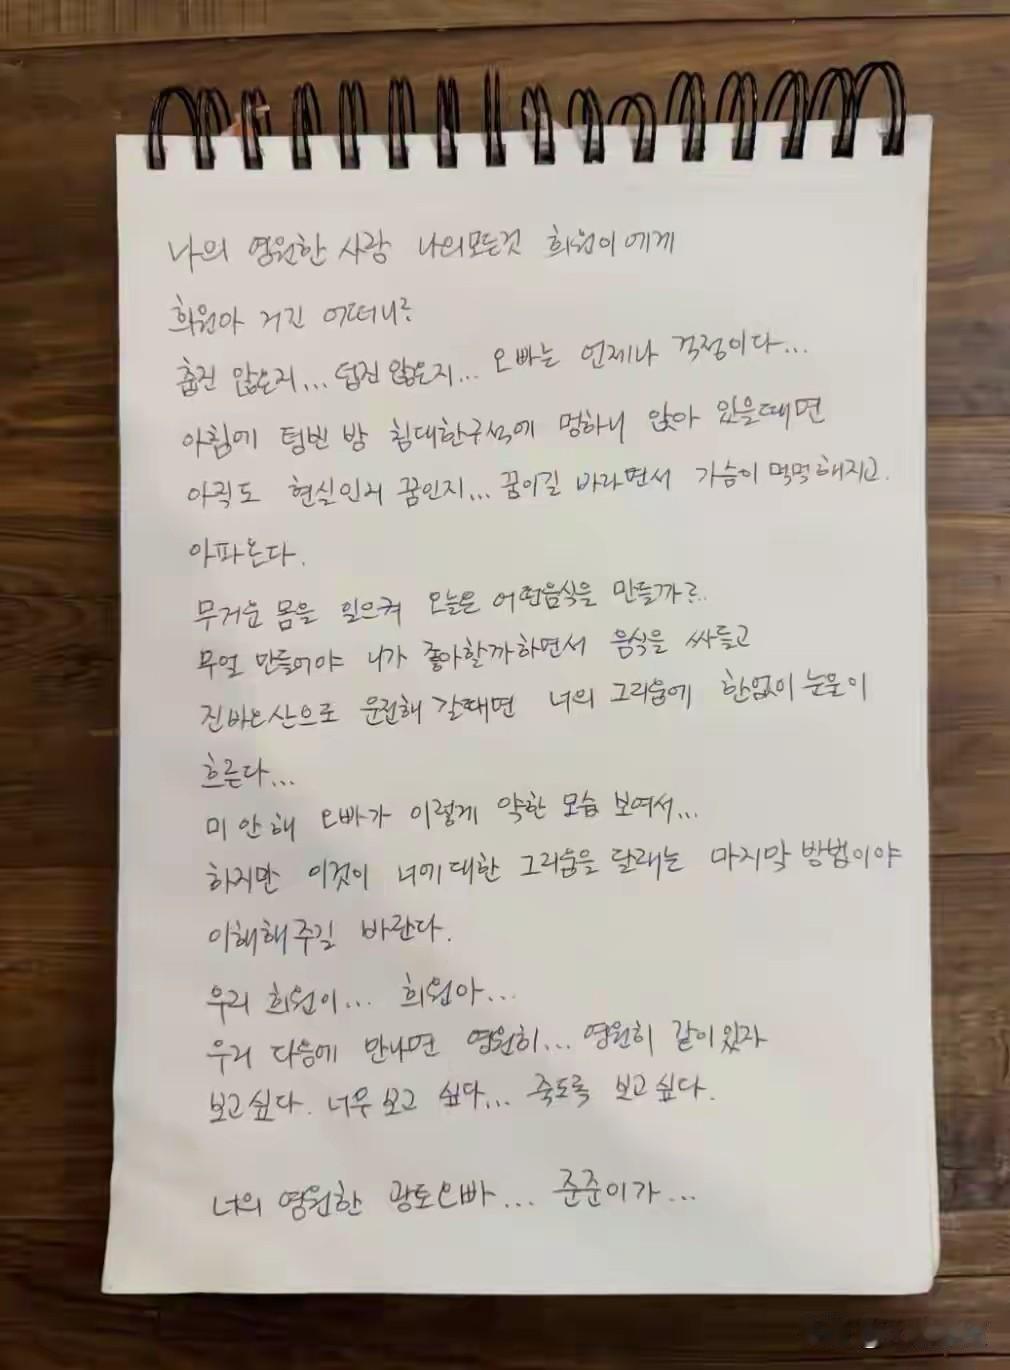 나의 영원한 사랑 나의모든것 희원이에게
희원아 거긴 어떠니?
춥진 않은지... 덥진 않은지... 오빠는 언제나 걱정이다...
아침에 텅빈 방 침대한구석에 멍하니 앉아 있을때면
아직도 현실인지 꿈인지... 꿈이길 바라면서 가슴이 먹먹해지고.
아파온다.
무거운 몸을 일으켜 오늘은 어떤음식을 만들까?..
무얼 만들어야 니가 좋아할까하면서 음식을 싸들고
진바오산으로 운전해 갈때면 너의 그리움에 한없이 눈물이
흐른다...
미안해 오빠가 이렇게 약한 모습 보여서...
하지만 이것이 너에대한 그리움을 달래는 마지막 방법이야
이해해주길 바란다.
우리 희원이... 희원아...
우리 다음에 만나면 영원히... 영원히 같이있자
보고싶다. 너무 보고 싶다... 죽도록 보고싶다.
너의 영원한 광토오빠... 준준이가...